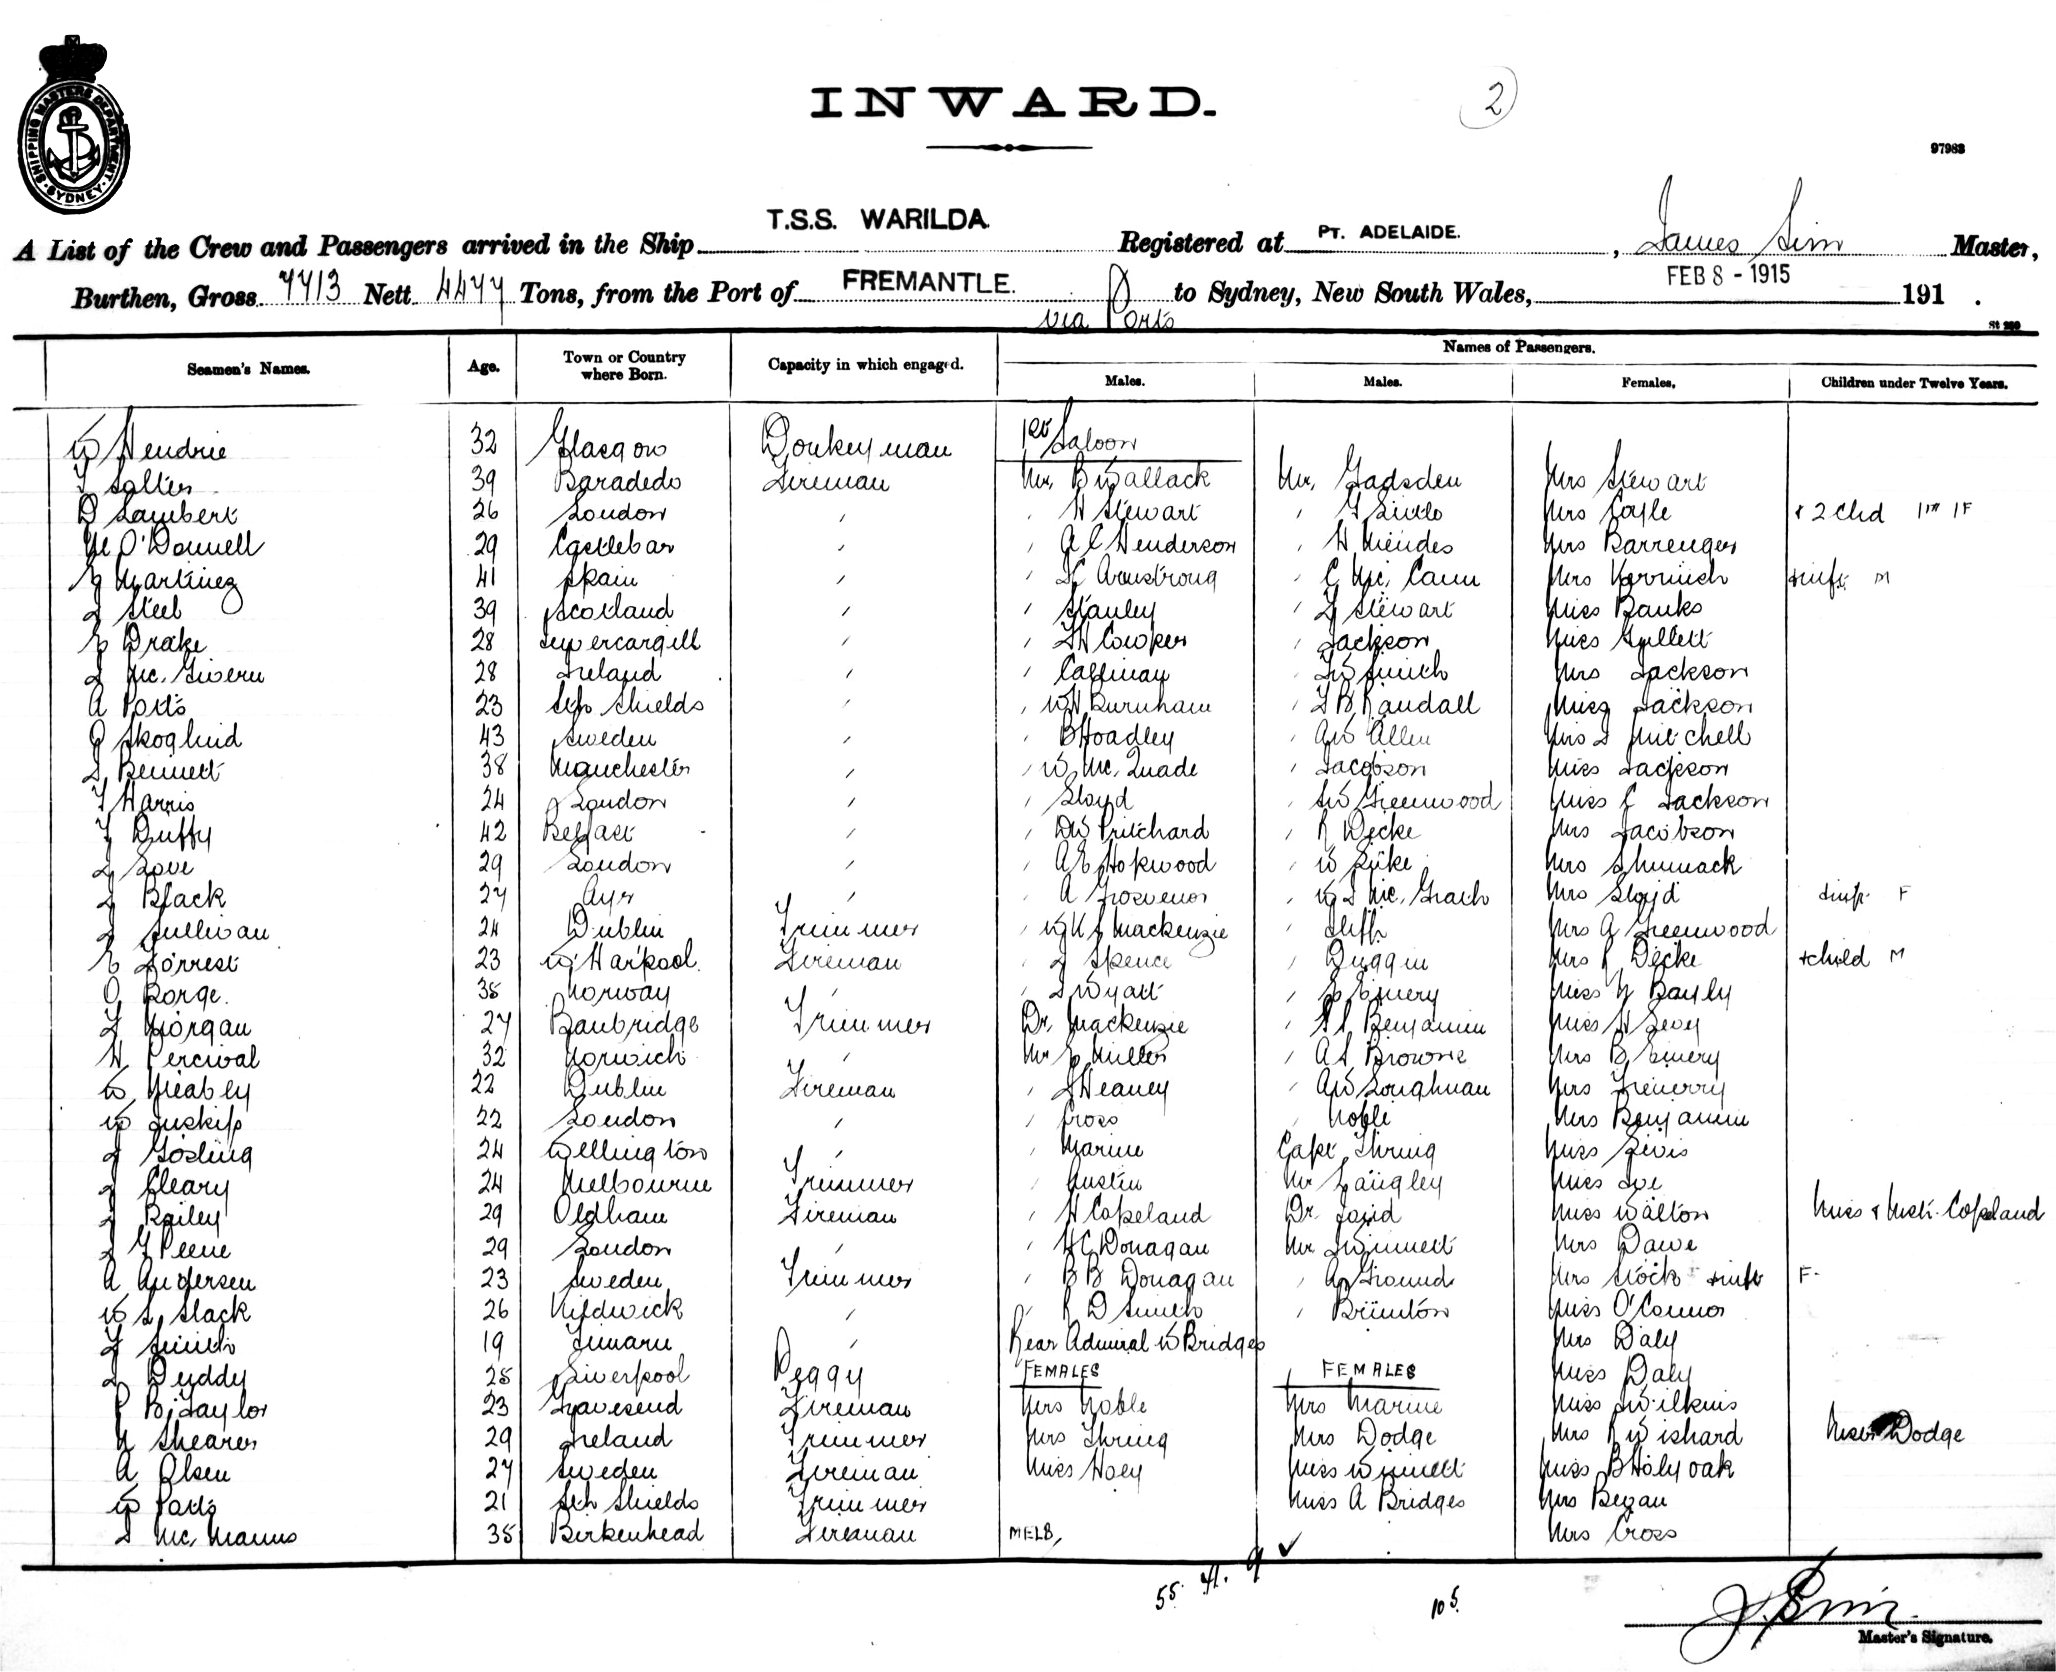 SHIPPING MASTERS DEPARTMENT SYDNEY
INWARD. 2
97983
A List of the Crew and Passengers arrived in the Ship T.S.S. WARILDA. Registered at PT. ADELAIDE. , James Sim Master,
Burthen, Gross 7713 Nett 4477 Tons, from the Port of FREMANTLE. to Sydney, New South Wales, FEB 8 - 1915 191 .
via Ports
Seamen's Names. Age. Town or Country where Born. Capacity in which engaged. Names of Passengers.
Males. Males. Females. Children under Twelve Years.
W Hendrie 32 Glasgow Donkeyman Saloon
Salter 39 Fireman Mr. B Wallack Mr. Gadsden Mrs Stewart
D Lambert 26 London " H Stewart " Mrs Coyle & 2 Chd 1M 1F
M O'Donnell 29 Castlebar " " A C Henderson " H Mendes Mrs Barrenger
Martinez 41 Spain " " Armstrong " C Mc. Cann Mrs + inft M
J Steel 39 Scotland " " Stanley " J Stewart Miss Banks
E Drake 28 Invercargill " " Cowper " Jackson Miss Gullett
J Mc. Givern 28 Ireland " " Callinan " Smith Mrs Jackson
A Potts 23 Sth Shields " " W H Burnham " Randall Miss Jackson
Skoglund 43 Sweden " " B Hoadley " A W Allen Mrs J Mitchell
J Bennett 38 Manchester " " W Mc. Quade " Jacobson Miss Jackson
T Harris 24 London " " Lloyd " Greenwood Miss Jackson
T Duffy 42 Belfast " " D W Pritchard " R Decke Mrs Jacobson
J Love 29 London " " A E Hopwood " W Mrs Shumack
J Black 27 Ayr " " A Grosvenor " Mc. Grath Mrs Lloyd + inft F
J Sullivan 24 Dublin Trimmer " Mackenzie " Iliffe Mrs A Greenwood
E Forrest 23 W. Harpool. Fireman " J Spence " Duggin Mrs R Decke + child M
O Borge. 35 Norway " " J Wyatt " E Emery Miss Bayly
Morgan 27 Banbridge Trimmer Dr. Mackenzie " Benjamin Miss H Levy
H Percival 32 Norwich " Mr E Miller " A L Browne Mrs B Emery
W Meably 22 Dublin Fireman " J Heaney " A W Loughnan Mrs
W Inskip 22 London " " Cross " Noble Mrs Benjamin
J Gosling 24 Wellington " " Marine Capt Thring Miss
J Cleary 24 Melbourne Trimmer " Austin Mr Langley Miss
J Bailey 29 Oldham Fireman " H Copeland Dr. Miss Walton Miss & Mast. Copeland
J 29 London " " Donagan Mr Swinnett Mrs Dawe
A Andersen 23 Sweden Trimmer " B B Donagan " A Ground Mrs Stock + inft F
W S Slack 26 Kildwick " " R D Smith " Brinton Miss O'Connor
Smith 19 Timaru " Rear Admiral W Bridges Mrs Daly
J Duddy 25 Liverpool Peggy FEMALES FEMALES Miss Daly
P B Taylor 23 Gravesend Fireman Mrs Noble Mrs Marine Miss Wilkins
Shearer 29 Ireland Trimmer Mrs Thring Mrs Dodge Mrs R Wishard Dodge
A Olsen 27 Sweden Fireman Miss Hoey Miss Winnett Miss B Holyoak
W Potts 21 Sth Shields Trimmer Miss A Bridges Mrs Began
J Mc. Manus 35 Birkenhead Fireman MELB, Mrs Cross
55 41. 9 ✓ 105.
J. Sim.
Master's Signature.